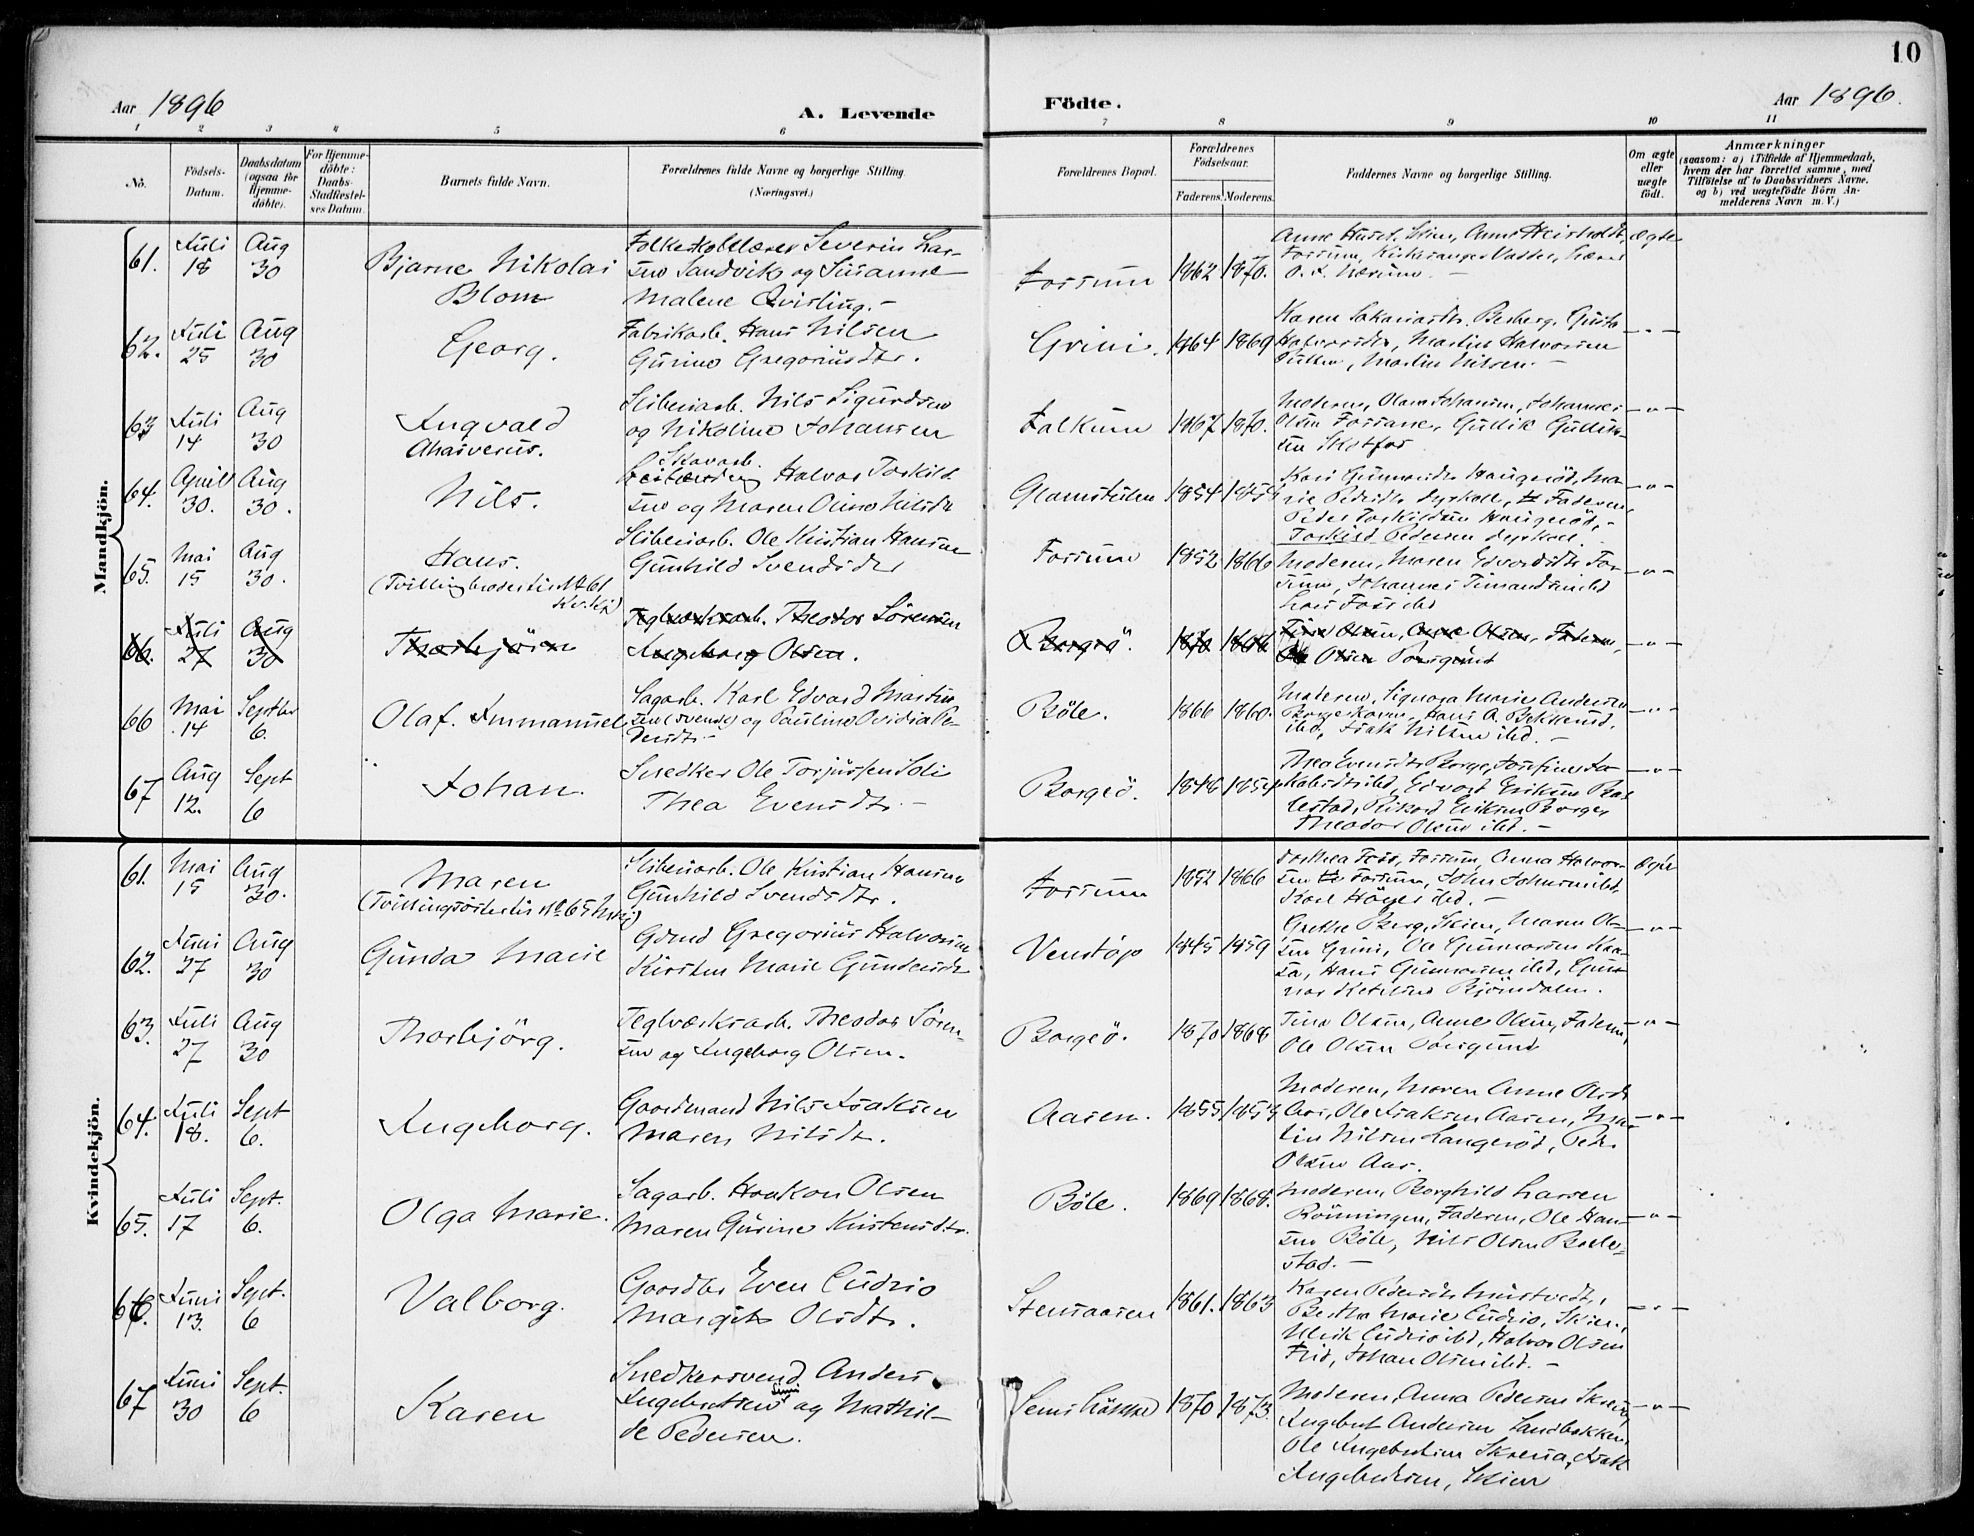 10
Aar 1896
A. Levende
Födte.
Aar 1896.
1 2 3 4 5 6 7 8 9 10 11
No.
Födsels-
Datum.
Daabsdatum
(ogsaa for
Hjemme-
döbte).
For Hjemme-
döbte:
Daabs-
Stadfæstel-
ses Datum.
Barnets fulde Navn.
Forældrenes fulde Navne og borgerlige Stilling.
(Næringsvei.)
Forældrenes Bopæl.
Forældrenes
Födselsaar.
Faderens. Moderens.
Faddernes Navne og borgerlige Stilling.
Om ægte
eller
uægte
födt.
Anmærkninger
(saasom: a) i Tilfælde af Hjemmedaab,
hvem der har forrettet samme, med
Tilföielse af to Daabsvidners Navne.
og b) ved uægtefödte Börn An-
melderens Navn m. V.)
Mandkjön.
61.
Juli
18
Aug
30
Bjarne Nikolai
Blom
Folkeskolelærer Severin Lar-
sen Sandvik og Susanne
Malene Qvisling.-
Fossum
1862 1870.
Fossum, Kirkesanger
ægte
62.
Juli
25
Aug
30
Georg.
Fabrikarb. Hans Nilsen
Gurine Gregoriusdtr.
Grini.
1864 1869
Martin Halvorsen
Martin Nilsen. -
- " -
63
Juli
14
Aug
30
Ingvald
Ahasverus.
Sliberiarb. Nils Sigurdsen
og Nikoline Johansen
Falkum
1867 1870.
Moderen, Olava Johansen, Johannes
Olsen Fossane, Gullik Gullik-
sen Skotfos
- " -
64.
April
30.
Aug
30.
Nils.
Skovarb.
Halvor Torkild-
sen og Maren Oline Nilsdtr
Glamstulen
1854
Peder Torkildsen Haugeröd,-
Torkild Pedersen
- " -
65.
Mai
15
Aug
30.
Hans.
(Tvillingbroder til No 61
Kv.kj)
Sliberiarb. Ole Kristian Hansen
Gunhild Svendsdtr
Fossum
1852 1866
Moderen, Maren Edvardsdtr Fos-
sum, Johannes
- " -
66.
Juli
27
Aug
30
Thorbjörn
Teglværksarb. Theodor Sörensen
Ingeborg Olsen.
Borgeö.
1870 1868
Tina Olsen, Anne Olsen, Faderen,
Ole Olsen Porsgrund
- " -
66
Mai
14
Septbr
6.
Olaf. Immanuel
Sagarb. Karl Edvard Martin
sen (Svensk) og Pauline Ovidia Pe-
dersdtr.-
Böle.
1866 1860.
Moderen, Signora Marie Andersen
ibd, Isak Nilsen ibd. -
- " -
67
Aug
12.
Sept
6
Johan.
Snedker Ole Torjussen Soli
Thea Evensdtr. -
Borgeö.
1848 1854
Thea Evensdtr Borge, Josefine Ja-
kobsdtr ibd, Edvard Eriksen Bal
lestad, Rikard Eriksen Borge,
Theodor Olsen ibd. -
- " -
Kvindekjön.
61.
Mai
15
Aug
30.
Maren
(Tvillingsöster til No 65 Mkj)
Sliberiarb. Ole Kristian Hansen
Gunhild Svendsdtr.
Fossum
1852 1866
Dorthea Foss, Fossum, Anna Halvor-
sen Fossum, John Johnsen ibd,
Karl Höyer ibd. -
Ægte
62.
Juni
27
Aug
30
Gunda Marie
Gdmd Gregorius Halvorsen
Kirsten Marie Gundersdtr
Venstöp
1845 1859
Grethe Berg, Skien, Maren Ol-
sen Grini, Ole Gunnarsen Kaa-
sa, Hans Gunnarsen ibd, Gun-
nar Ketilsen Björndalen.
- " -
63.
Juli
27
Aug
30
Thorbjörg.
Teglværksarb. Theodor Sören-
sen og Ingeborg Olsen.
Borgeö.
1870 1868
Tina Olsen, Anne Olsen, Faderen,
Ole Olsen Porsgrund
- " -
64.
Juli
18.
Sept
6.
Ingeborg.
Gaardmand Nils Isaksen
Maren Nilsdtr.
Aasen.
1855 1853
Moderen, Maren Anne Olsdtr
Aas, Ole Isaksen Aasen, Mar-
tin Nilsen Langeröd, Peder
Olsen Aas.
- " -
65.
Juli
17
Sept.
6.
Olga Marie.
Sagarb. Haakon Olsen
Maren Gurine Kristensdtr.
Böle.
1869 1868.
Moderen, Borghild Larsen
Rönningen, Faderen, Ole Han-
sen Böle, Nils Olsen Balle-
stad. -
- " -
66.
Juni
13.
Sept.
6
Valborg.
Gaardbr Even Cudrio
Margit Olsdtr.
Stensaasen
1861. 1863
Karen Pedersdtr Mustvedt,
Bertha Marie Cudrio, Skien,
Ulrik Cudrio ibd, Halvor Olsen
Friis, Johan Olsen ibd. -
- " -
67
Juni
30
Sept.
6
Karen
Snedkersvend Anders
Ingebretsen Semi og Mathil-
de Pedersen.
1870 1873.
Moderen, Anna Pedersen Skrena,
Ingebret Andersen Sandbakken,
Ole Ingebretsen Skrena, Isak
Ingebretsen, Skien
- " -